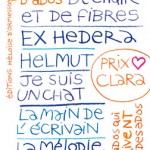 DE CHAIR
ET DE FIBRES
EX HEDERA
HELMUT
JE SUIS
UN CHAT
LA MAIN DE
L'ÉCRIVAIN
LA MÉLODIE
PRIX
CLARA
ÉDITIONS HÉLOÏSE D'ORMESSON